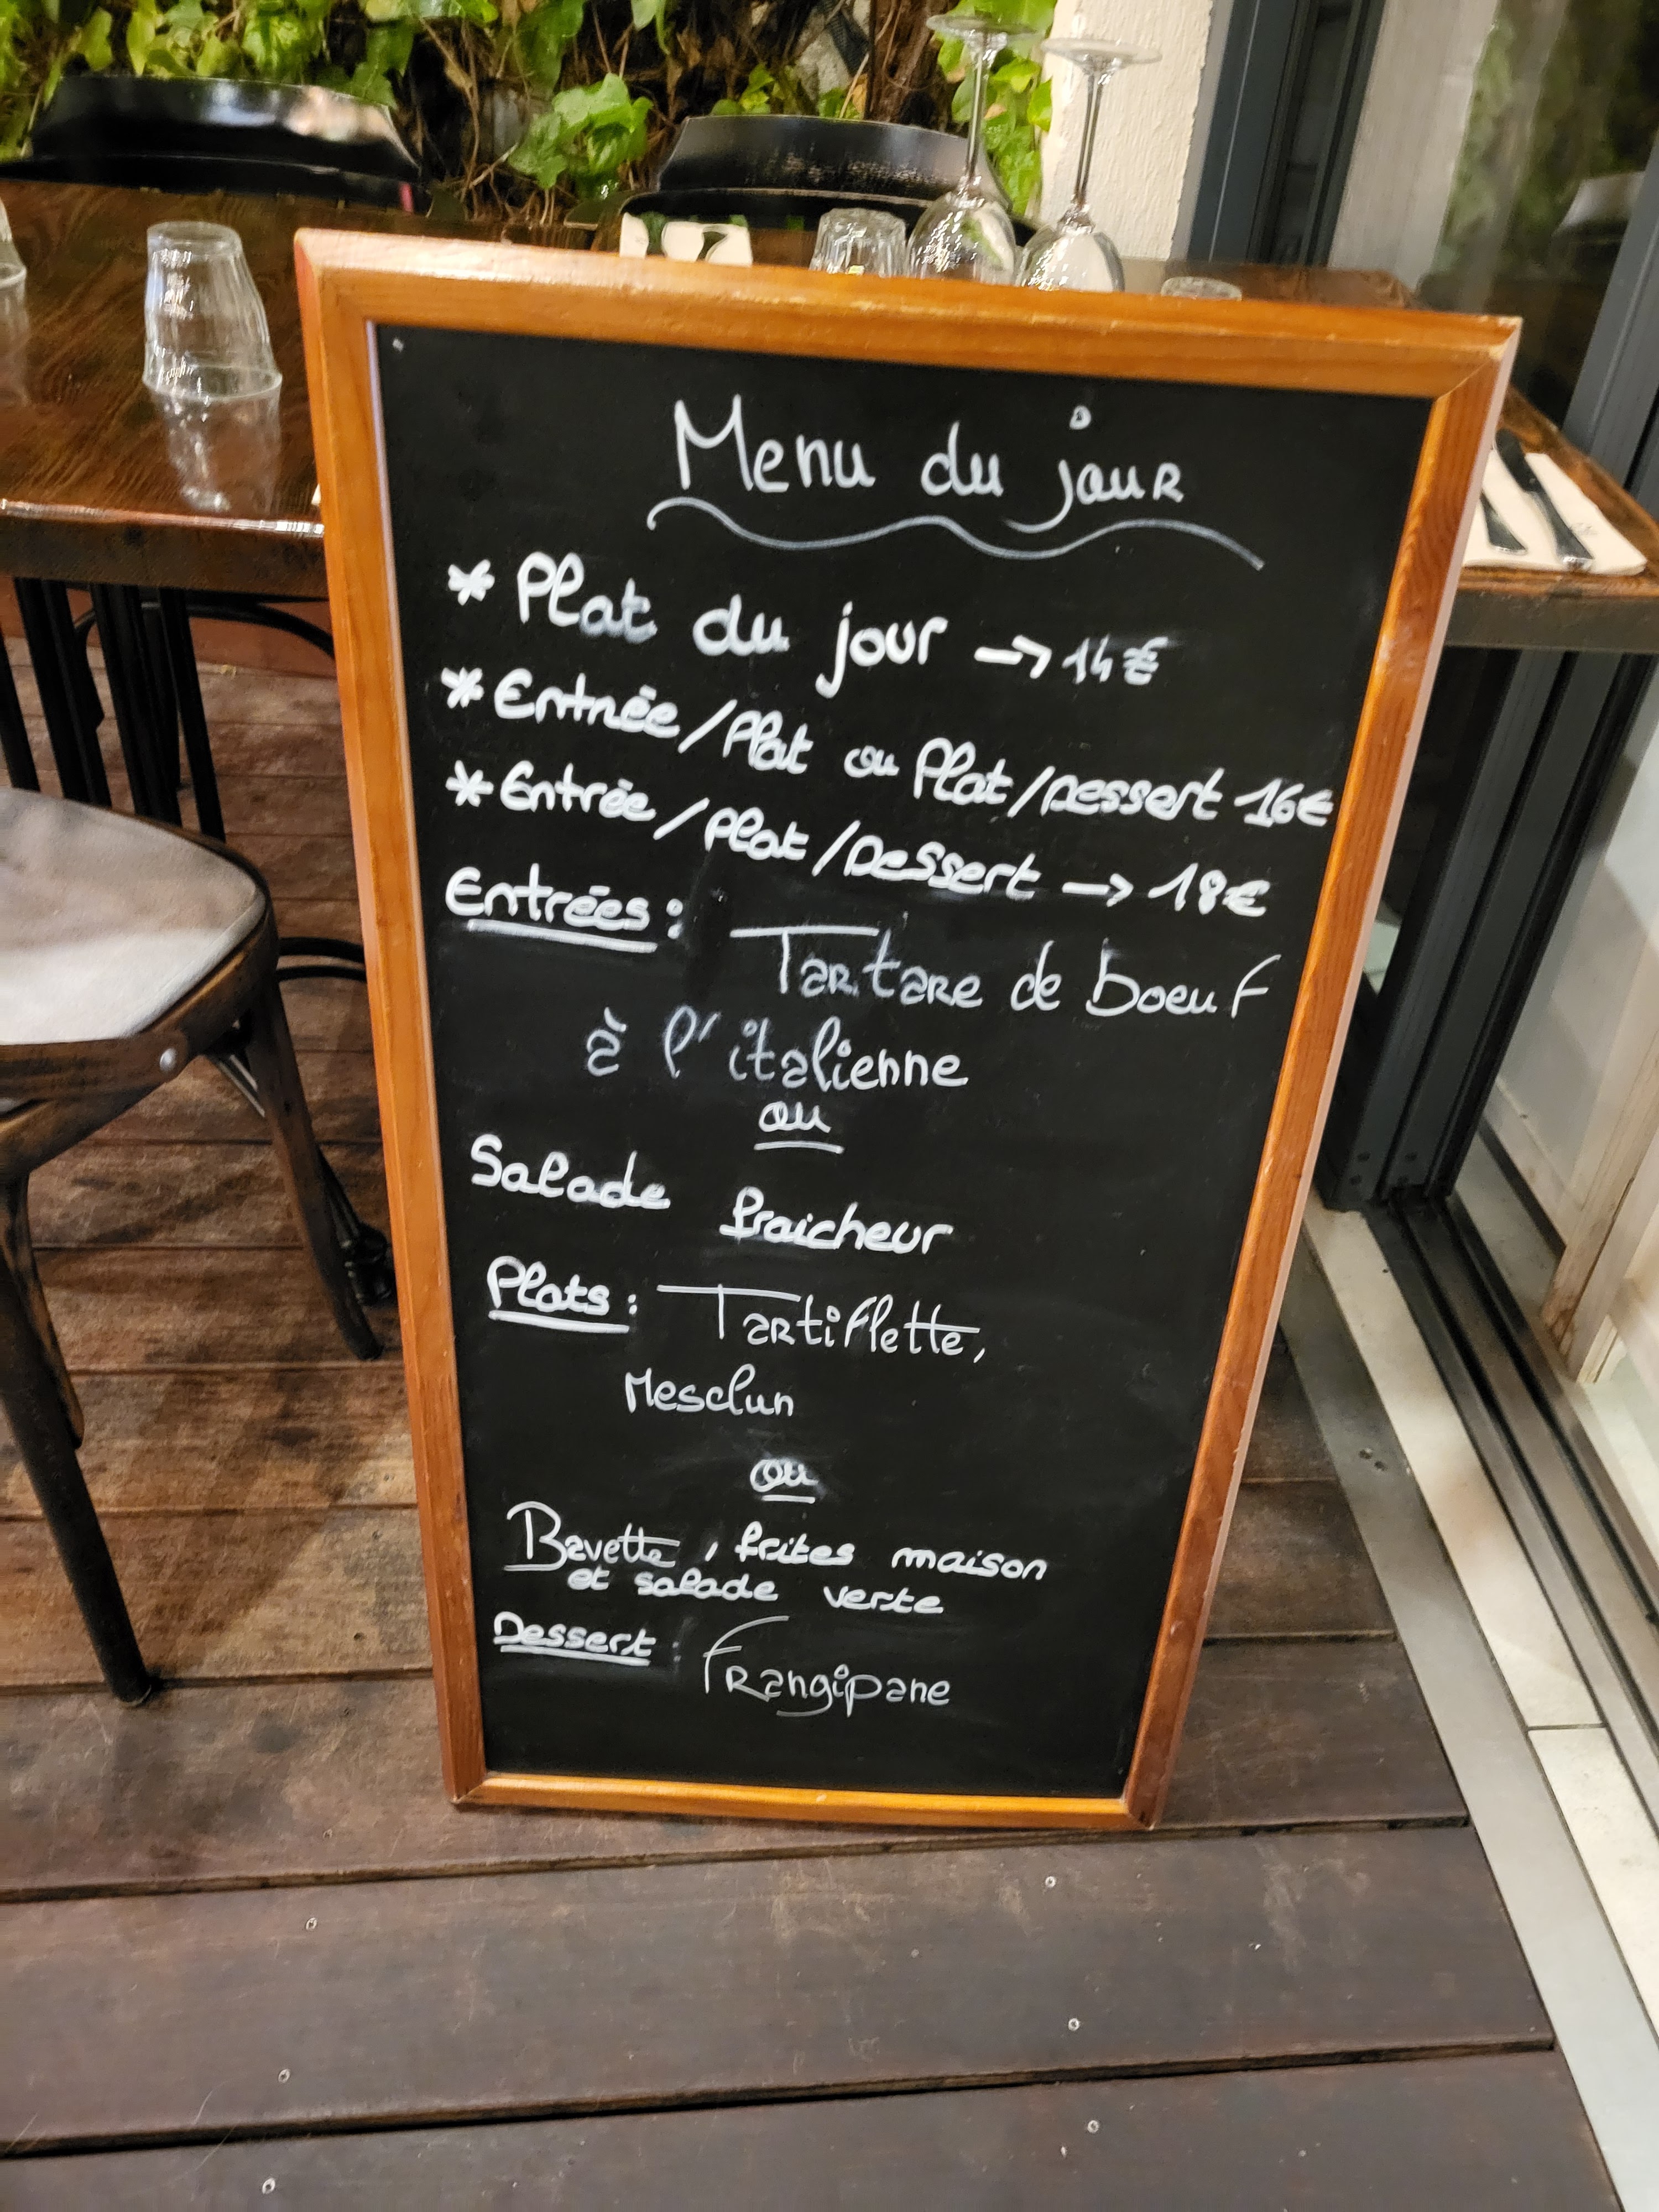 Menu du jour
* Plat du jour → 14€
* Entrée/Plat ou Plat/Dessert 16€
* Entrée/Plat/Dessert → 18€
Entrées : Tartare de boeuf
à l'italienne
ou
Salade fraicheur
Plats : Tartiflette,
Mesclun
ou
Bavette, frites maison
et salade verte
Dessert : Frangipane